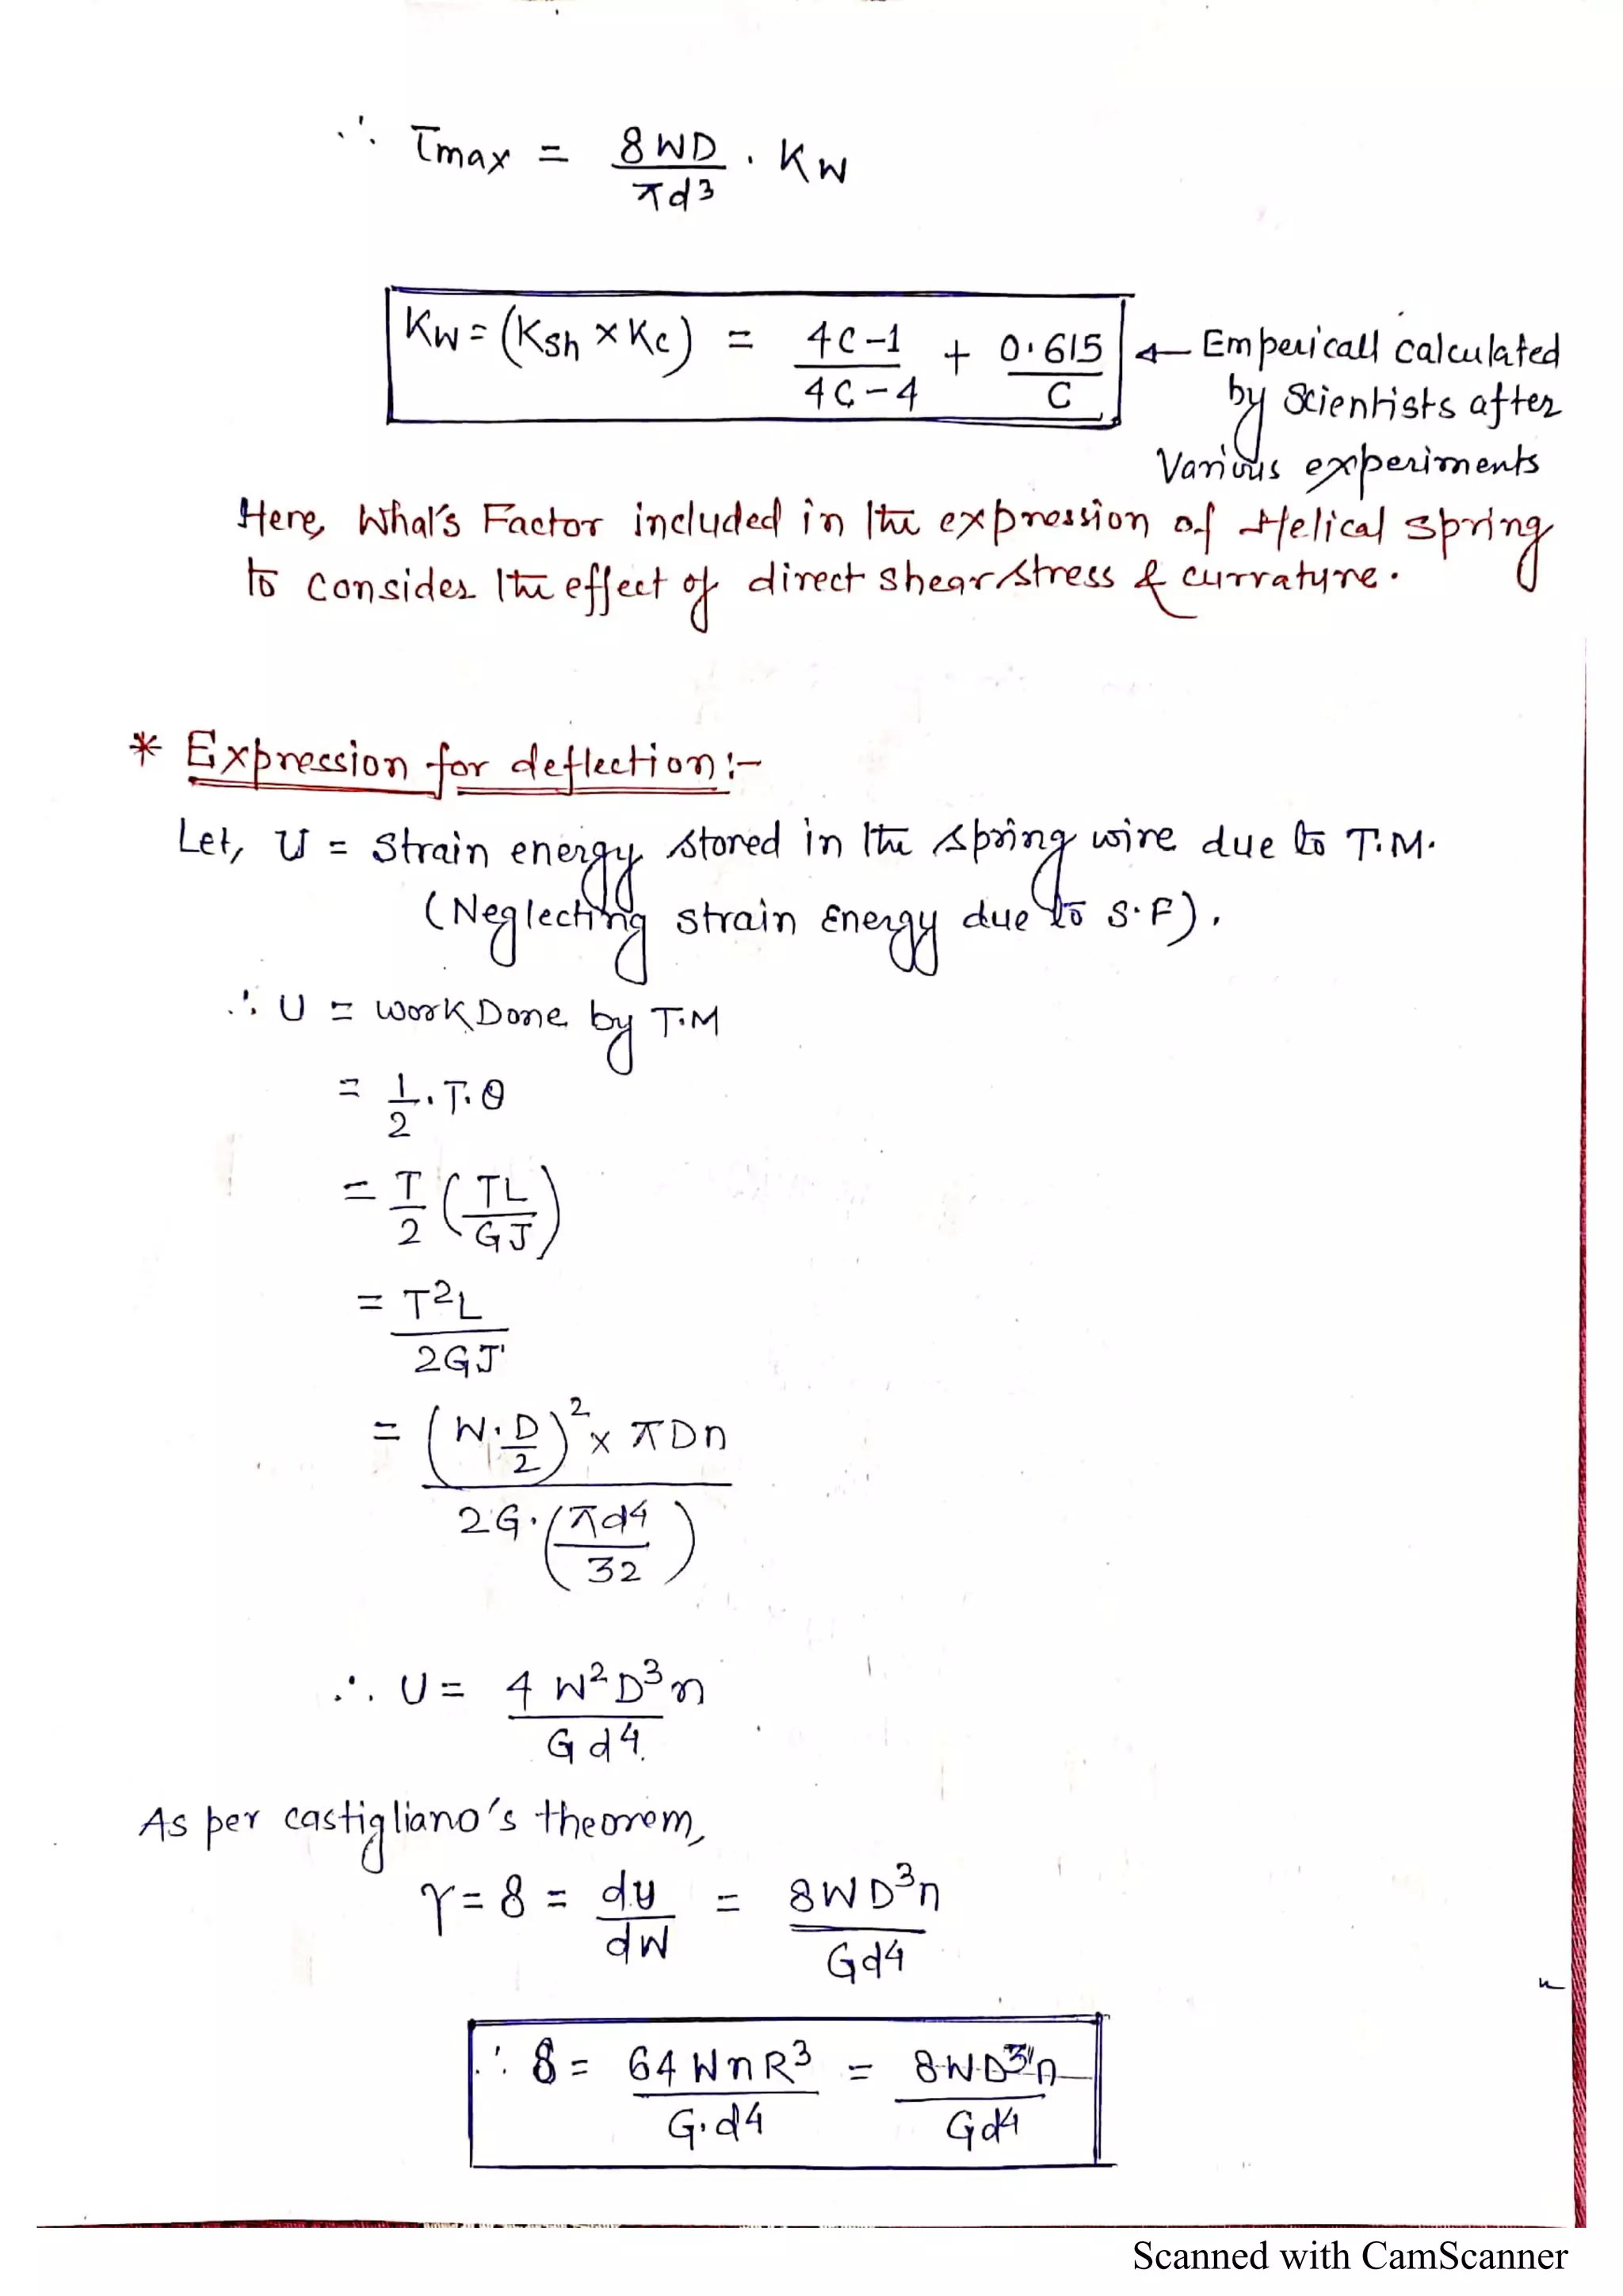 ∴ τmax = 8WD/πd³ · Kw
Kw = (Ksh × Kc) = 4C-1/4C-4 + 0.615/C ← Empericall calculated
by Scientists after
Various experiments
Here, Whal's Factor included in the expression of Helical spring
to consider the effect of direct shear stress & currature.
* Expression for deflection:-
Let, U = Strain energy stored in the spring wire due to T.M.
(Neglecting strain Energy due to S.F).
∴ U = work Done by T.M
= 1/2 . T. θ
= T/2 (TL/GJ)
= T²L/2GJ
= (W. D/2)² × πDn / 2G. (πd4/32)
∴ U = 4 W²D³n/Gd4.
As per castigliano's theorem,
γ = δ = du/dW = 8WD³n/Gd4
∴ δ = 64 WnR³/G.d4 = 8WD³n/Gd4
Scanned with CamScanner